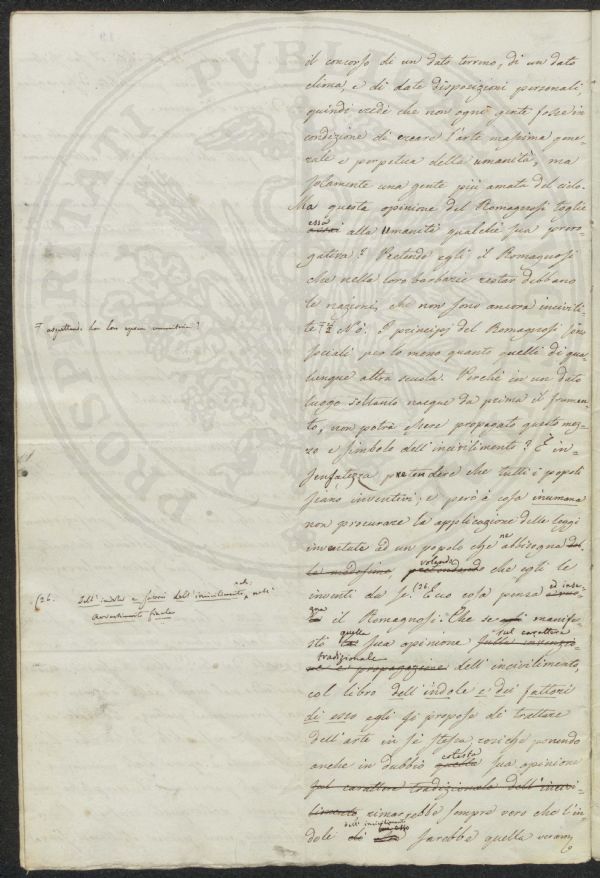 il concorso di un dato terreno, di un dato
clima, e di date disposizioni personali,
quindi credè che non ogni gente fosse in
condizione di creare l'arte massima gene-
rale e perpetua della umanità, ma
solamente una gente più amata del cielo.
Ma questa opinione del Romagnosi toglie
essa
alla umanità qualche sua prero-
gativa? Pretende egli il Romagnosi
che nella loro barbarie restar debbano
le nazioni, che non sono ancora incivili-
te? No. I principj del Romagnosi sono
sociali per lo meno quanto quelli di qua-
lunque altra scuola. Perchè in un dato
luogo soltanto nacque da prima il frumen-
to, non potrà essere propagato questo mez-
zo e simbolo dell'incivilimento? È in-
sensatezza pretendere che tutti i popoli
siano inventivi; e però è cosa inumana
non procurare la applicazione delle leggi
inventate ad un popolo che ne abbisogna
la medesima, volendo che egli le
inventi da se. (26. Ecco cosa pensa ed inse-
gna il Romagnosi. Che se manife-
stò quella sua opinione sul carattere
tradizionale
ne e propagazione dell'incivilimento,
col libro dell'indole e dei fattori
di esso egli si propose di trattare
dell'arte in se stessa, cosichè ponendo
anche in dubbio cotesta sua opinione
sul carattere tradizionale dell'incivi-
limento rimarrebbe sempre vero che l'in-
dole dell'incivilimento sarebbe quella veram
aspettando la loro
(26. Dell'indole e fattori dell'incivilimento, nell'
Avvertimento finale
PROSPERITATI PVBLICAE